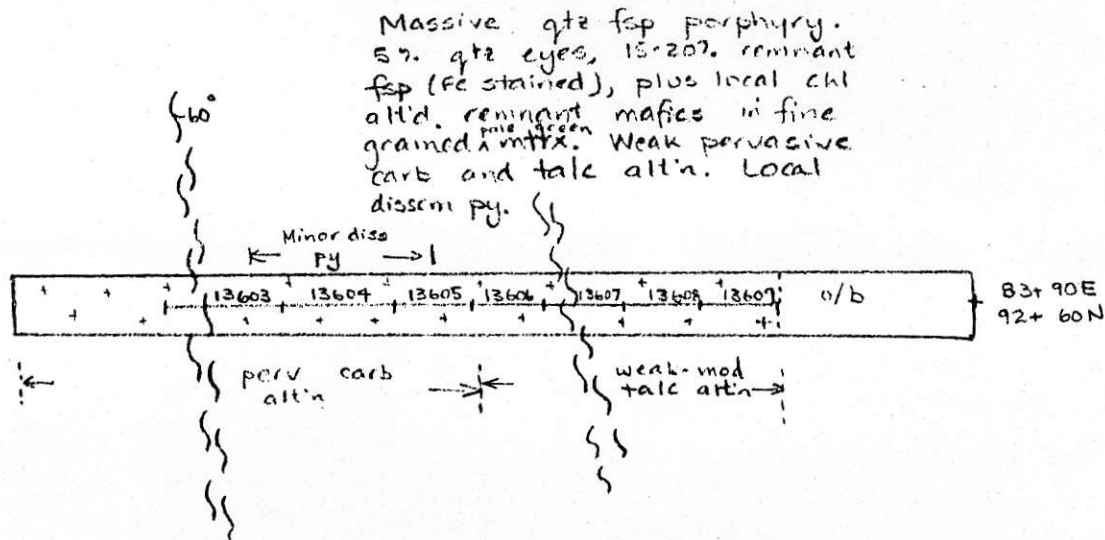 Massive qtz fsp porphyry.
5% qtz eyes, 15-20% remnant
fsp (Fe stained), plus local chl
alt'd. remnant mafics in fine
grained ^ pale green mtrx. Weak pervasive
carb and talc alt'n. Local
dissem py.
60°
Minor diss
py
13603 13604 13605 13606 13607 13608 13609 o/b
83+90E
92+60N
perv carb
alt'n
weak-mod
talc alt'n